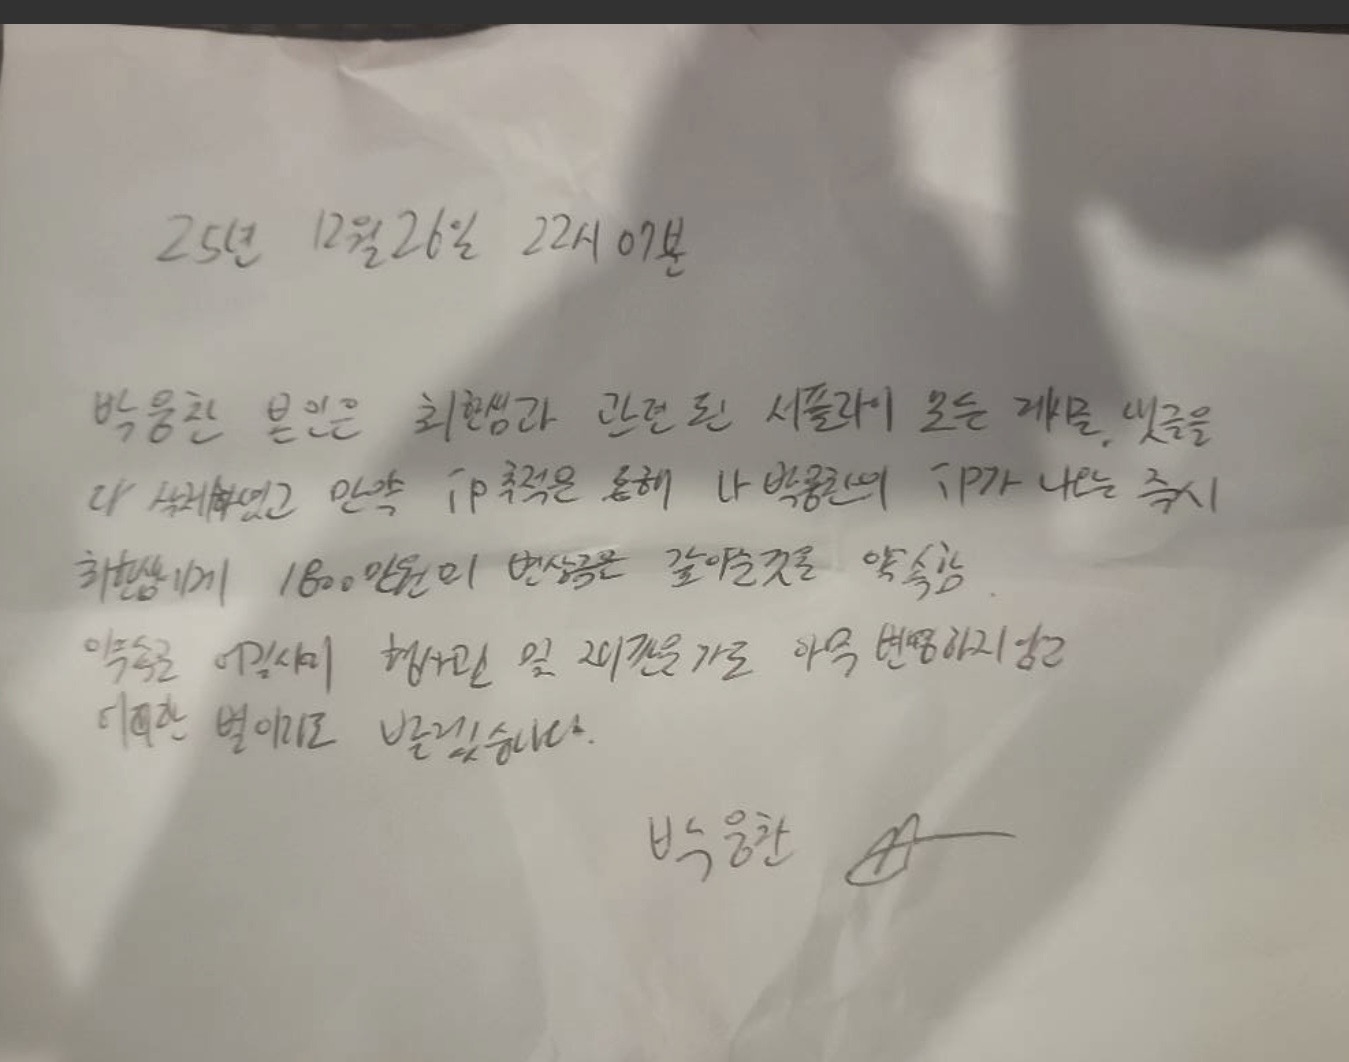 25년 12월 26일 22시 07분
박웅찬 본인은 최한샘과 관련된 서플라이 모든 게시물, 댓글을
다 삭제하였고 만약 ip추적은 통해 나 박웅찬의 ip가 나오는 즉시
최한샘에게 1800만원의 변상금은 갚아줄것을 약속함.
이약속을 어길시에 형사관 및 아무 변명하지않고
어떠한 벌이라도 받겠습니다.
박웅찬